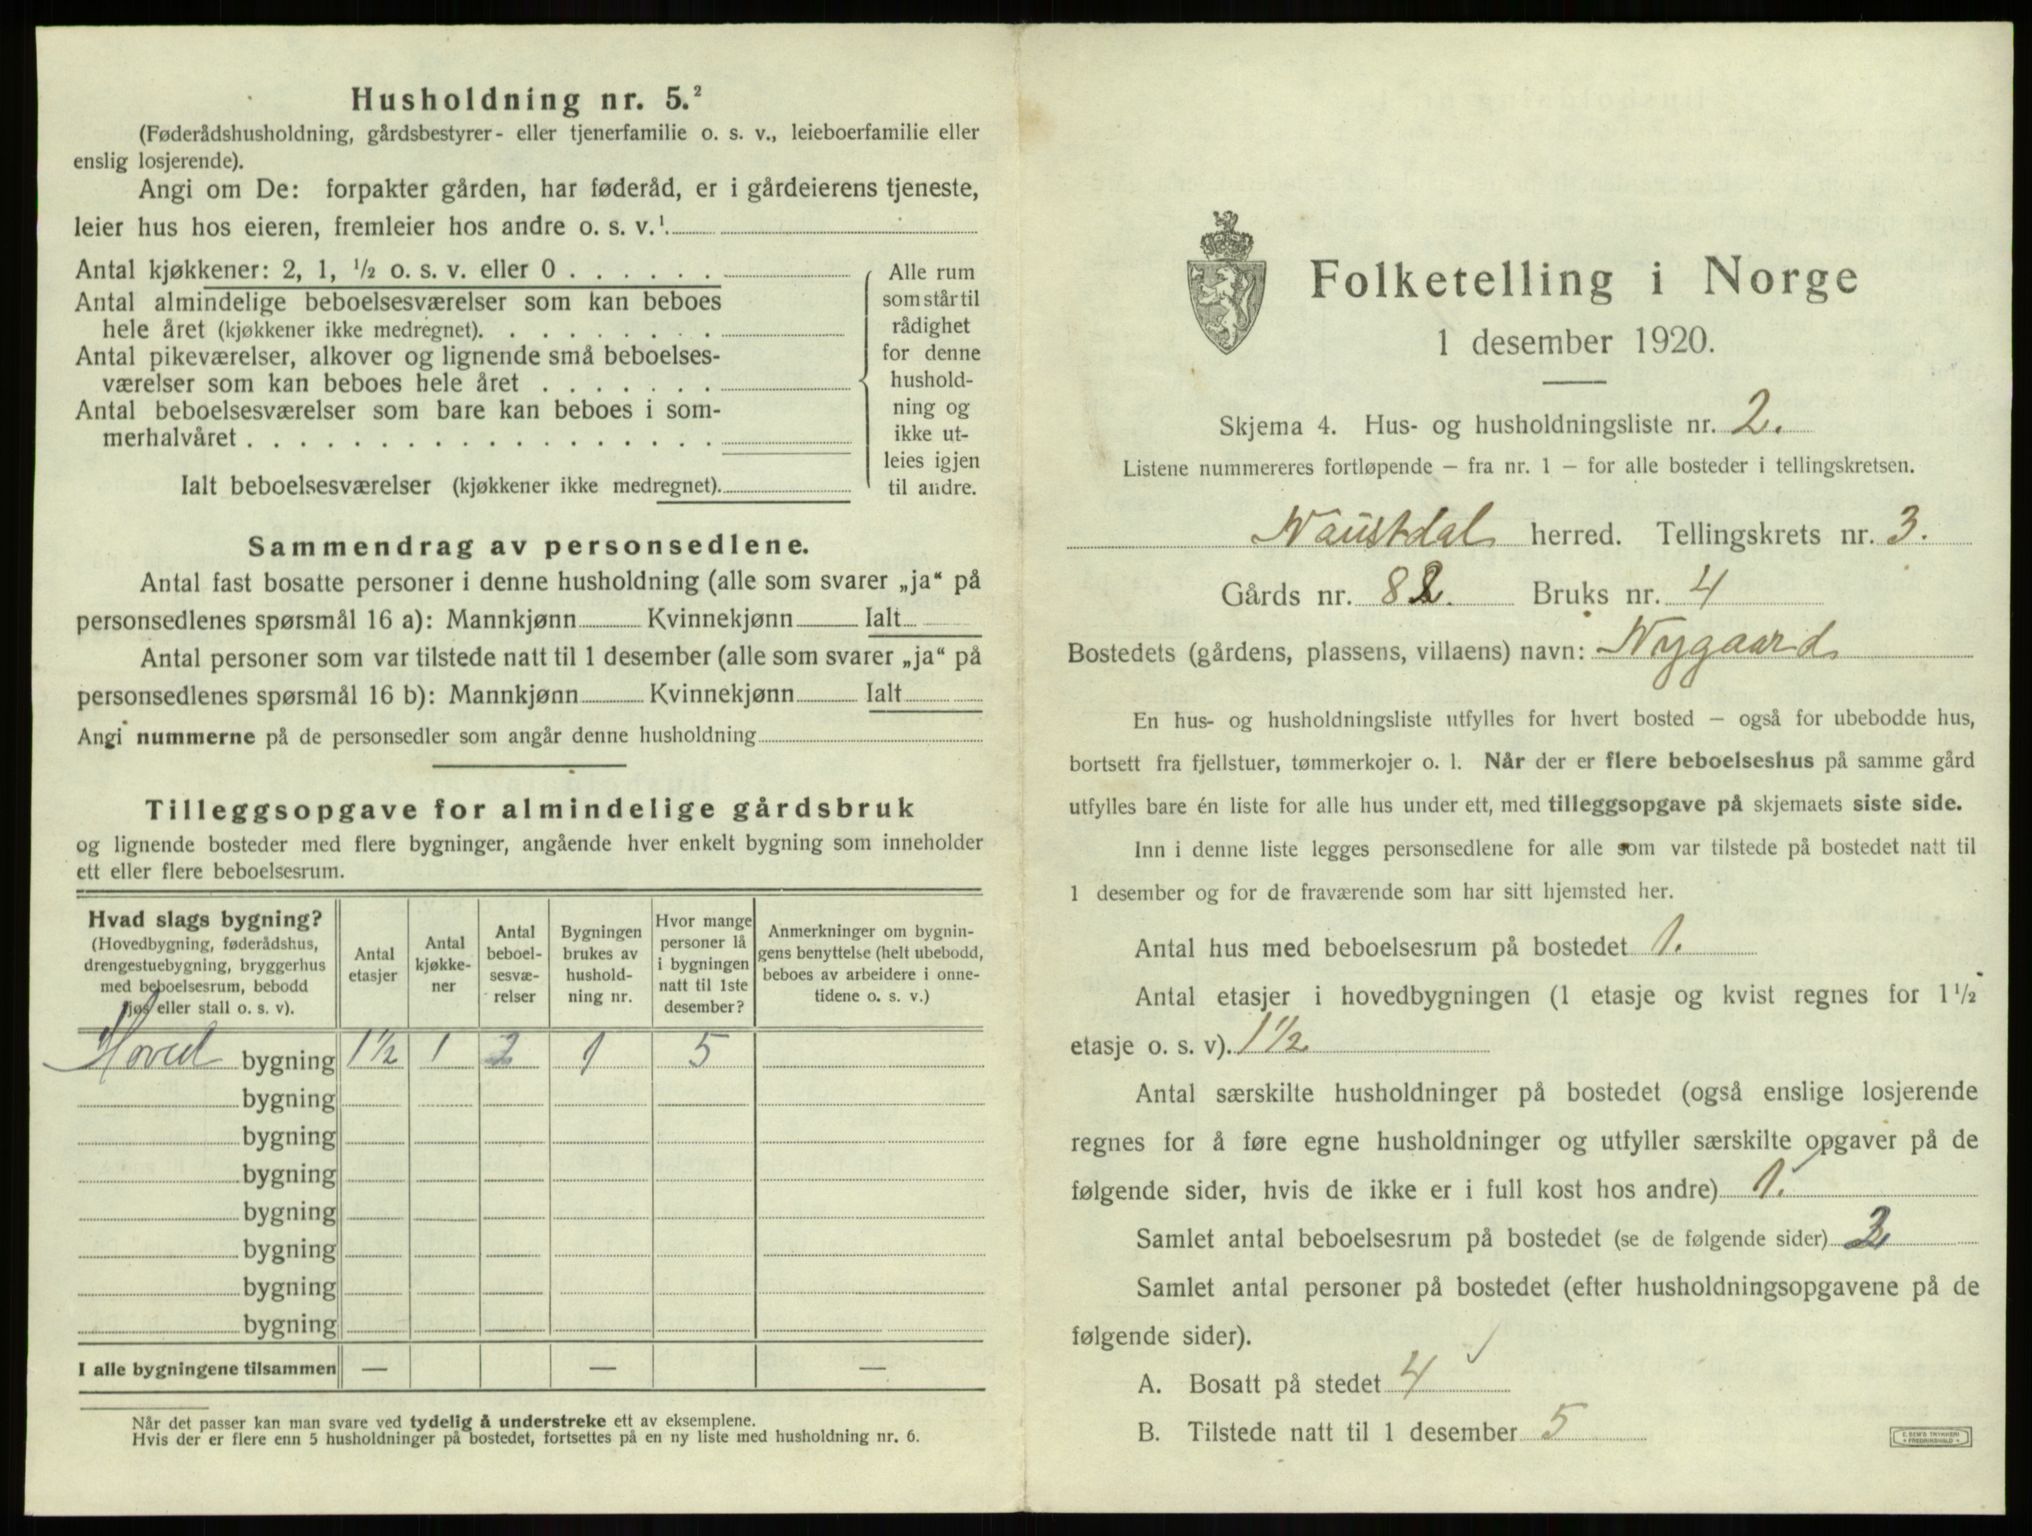 Husholdning nr. 5.²
(Føderådshusholdning, gårdsbestyrer- eller tjenerfamilie o. s. v., leieboerfamilie eller
enslig losjerende).
Angi om De: forpakter gården, har føderåd, er i gårdeierens tjeneste,
leier hus hos eieren, fremleier hos andre o. s. v.¹
Antal kjøkkener: 2, 1, ½ o. s. v. eller 0 . . . . . .
Antal almindelige beboelsesværelser som kan beboes
hele året (kjøkkener ikke medregnet). . . . . . . . .
Antal pikeværelser, alkover og lignende små beboelses-
værelser som kan beboes hele året . . . . . . .
Antal beboelsesværelser som bare kan beboes i som-
merhalvåret . . . . . . . . . . . . . . . . . .
Ialt beboelsesværelser (kjøkkener ikke medregnet).
Alle rum
som står til
rådighet
for denne
hushold-
ning og
ikke ut-
leies igjen
til andre.
Sammendrag av personsedlene.
Antal fast bosatte personer i denne husholdning (alle som svarer „ja“ på
personsedlenes spørsmål 16 a): Mannkjønn Kvinnekjønn Ialt
Antal personer som var tilstede natt til 1 desember (alle som svarer „ja“ på
personsedlenes spørsmål 16 b): Mannkjønn Kvinnekjønn Ialt
Angi nummerne på de personsedler som angår denne husholdning
Tilleggsopgave for almindelige gårdsbruk
og lignende bosteder med flere bygninger, angående hver enkelt bygning som inneholder
ett eller flere beboelsesrum.
Hvad slags bygning?
(Hovedbygning, føderådshus,
drengestuebygning, bryggerhus
med beboelsesrum, bebodd
fjøs eller stall o. s. v).
Antal
etasjer
Antal
kjøkke-
ner
Antal
beboel-
sesvæ-
relser
Bygningen
brukes av
hushold-
ning nr.
Hvor mange
personer lå
i bygningen
natt til 1ste
desember?
Anmerkninger om bygnin-
gens benyttelse (helt ubebodd,
beboes av arbeidere i onne-
tidene o. s. v.)
Hoved bygning 1½ 1 2 1 5
bygning
bygning
bygning
bygning
bygning
bygning
bygning
I alle bygningene tilsammen — — —
Når det passer kan man svare ved tydelig å understreke ett av eksemplene.
Hvis der er flere enn 5 husholdninger på bostedet, fortsettes på en ny liste med husholdning nr. 6.
Folketelling i Norge
1 desember 1920.
Skjema 4. Hus- og husholdningsliste nr. 2.
Listene nummereres fortløpende — fra nr. 1 — for alle bosteder i tellingskretsen.
Naustdal herred. Tellingskrets nr. 3.
Gårds nr. 82. Bruks nr. 4
Bostedets (gårdens, plassens, villaens) navn: Nygaard
En hus- og husholdningsliste utfylles for hvert bosted — også for ubebodde hus,
bortsett fra fjellstuer, tømmerkojer o. l. Når der er flere beboelseshus på samme gård
utfylles bare én liste for alle hus under ett, med tilleggsopgave på skjemaets siste side.
Inn i denne liste legges personsedlene for alle som var tilstede på bostedet natt til
1 desember og for de fraværende som har sitt hjemsted her.
Antal hus med beboelsesrum på bostedet 1.
Antal etasjer i hovedbygningen (1 etasje og kvist regnes for 1½
etasje o. s. v). 1½
Antal særskilte husholdninger på bostedet (også enslige losjerende
regnes for å føre egne husholdninger og utfyller særskilte opgaver på de
følgende sider, hvis de ikke er i full kost hos andre) 1.
Samlet antal beboelsesrum på bostedet (se de følgende sider) 2
Samlet antal personer på bostedet (efter husholdningsopgavene på de
følgende sider).
A. Bosatt på stedet 4
B. Tilstede natt til 1 desember 5